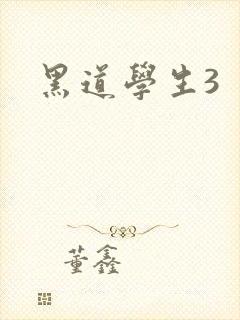 黑道學生3
董鑫